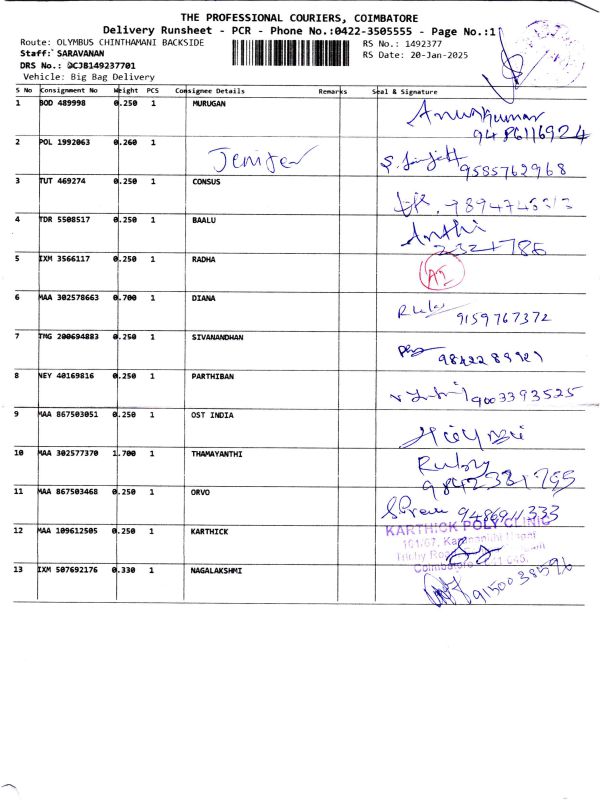 THE PROFESSIONAL COURIERS, COIMBATORE
Delivery Runsheet - PCR - Phone No.:0422-3505555 - Page No.:1
Route: OLYMBUS CHINTHAMANI BACKSIDE RS No.: 1492377
Staff: SARAVANAN RS Date: 20-Jan-2025
DRS No.: DCJB149237701
Vehicle: Big Bag Delivery
S No Consignment No Weight PCS Consignee Details Remarks Seal & Signature
1 BOD 489998 0.250 1 MURUGAN
9486116924
2 POL 1992063 0.260 1 Jenifer
9585762968
3 TUT 469274 0.250 1 CONSUS
4 TDR 5508517 0.250 1 BAALU
5 IXM 3566117 0.250 1 RADHA
6 MAA 302578663 0.700 1 DIANA
9159767372
7 TMG 200694883 0.250 1 SIVANANDHAN
8 NEY 40169816 0.250 1 PARTHIBAN
9003393525
9 MAA 867503051 0.250 1 OST INDIA
10 MAA 302577370 1.700 1 THAMAYANTHI
Ruby
11 MAA 867503468 0.250 1 ORVO
12 MAA 109612505 0.250 1 KARTHICK
KARTHICK POLY CLINIC
13 IXM 507692176 0.330 1 NAGALAKSHMI
9150038596